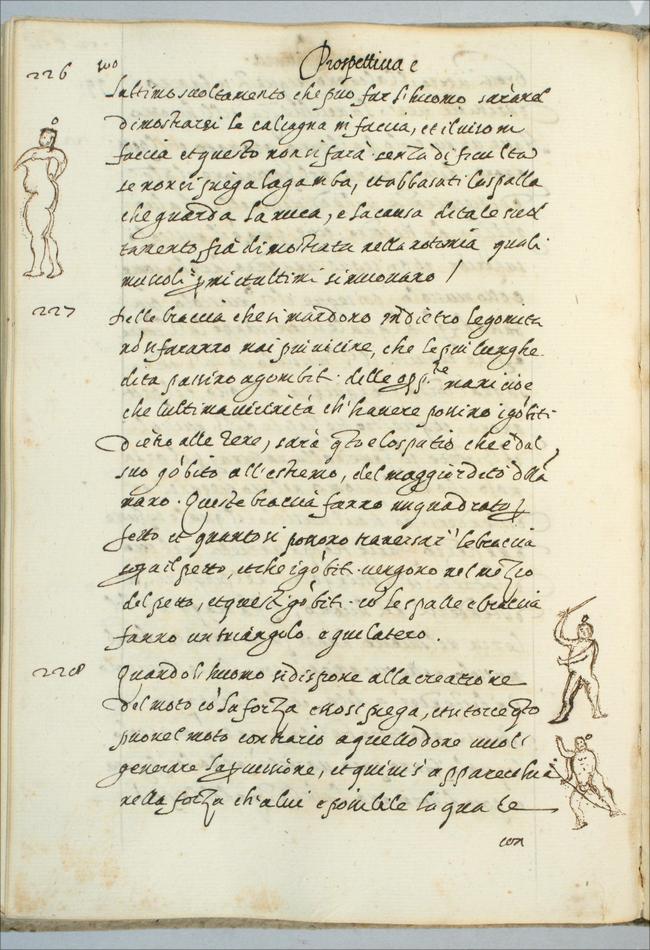 Prospettiua e
226
L'ultimo suoltamento che può far l'huomo sarà nel
dimostrarsi le calcagna in faccia, et il uiso in
faccia et questo non si farà senza dificultà
se non si piega la gamba, et abbasasi la spalla
che guarda la nuca, e la causa di tale suol
tamento fia dimostrata nella notomia quali
muscoli pmi et ultimi si muouano /
227
Delle braccia che si mandono indietro le gomita
nō si faranno mai piu uicine, che le piu lunghe
dita passino i gombiti delle opp.te mani cioè
che l'ultima uicinità ch'hauere possino i gōbiti
Dietro alle rene, sarà qto è lo spatio che è dal
suo gōbito all'estremo, del maggior dito dlla
mano. Queste braccia fanno un quadrato pfetto
et quanto si possono trauersar' le braccia
sopra il petto, et che i gōbiti uengono nel mezo
del petto, et questi gōbiti cō le spalle e braccia
fanno un triangolo equilatero.
228
Quando l'huomo si dispone alla creatione
Del moto cō la forza e si piega, et si torce qto
può nel moto contrario a quello doue uuol
generare la pcussione, et quiui s'apparecchia
nella forza ch'a lui è possibile la quale
con